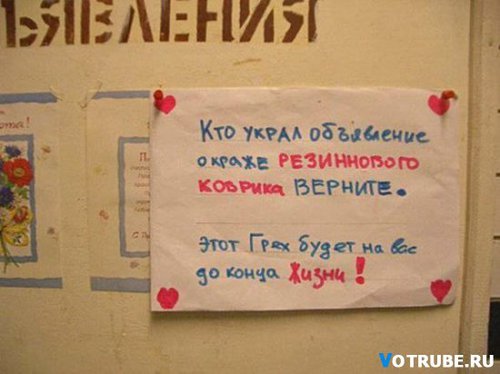 ЪЯВЛЕНИЯ
Кто украл объявление
о краже РЕЗИННОВОГО
КОВРИКА ВЕРНИТЕ.
этот Грех будет на вас
до конца Жизни!
VOTRUBE.RU